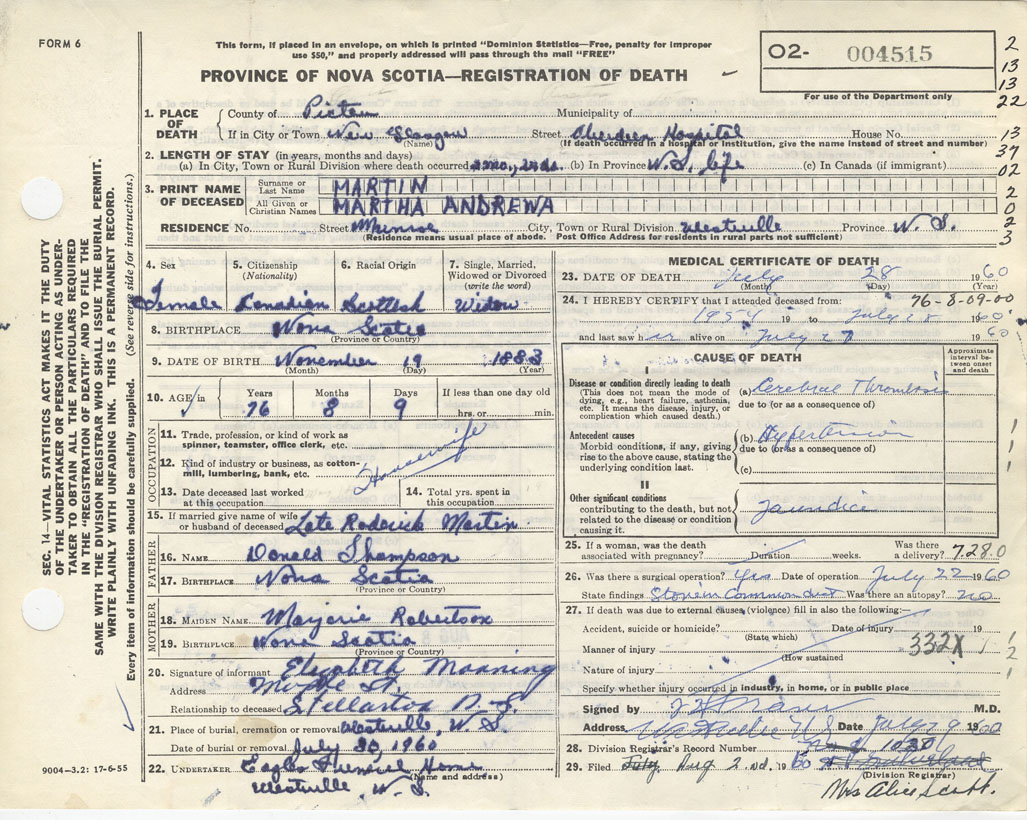 FORM 6
This form, if placed in an envelope, on which is printed "Dominion Statistics—Free, penalty for improper
use $50," and properly addressed will pass through the mail "FREE"
PROVINCE OF NOVA SCOTIA—REGISTRATION OF DEATH
O2- 004515
For use of the Department only
2
13
13
22
13
37
02
2
0
2
3
SEC. 14—VITAL STATISTICS ACT MAKES IT THE DUTY
OF THE UNDERTAKER OR PERSON ACTING AS UNDER-
TAKER TO OBTAIN ALL THE PARTICULARS REQUIRED
IN THE "REGISTRATION OF DEATH" AND TO FILE THE
SAME WITH THE DIVISION REGISTRAR WHO SHALL ISSUE THE BURIAL PERMIT.
WRITE PLAINLY WITH UNFADING INK. THIS IS A PERMANENT RECORD.
Every item of information should be carefully supplied. (See reverse side for instructions.)
1. PLACE OF DEATH County of Pictou Municipality of
If in City or Town New Glasgow Street Aberdeen Hospital House No.
(Name) (If death occurred in a hospital or institution, give the name instead of street and number)
2. LENGTH OF STAY (in years, months and days)
(a) In City, Town or Rural Division where death occurred (b) In Province N.S. life (c) In Canada (if immigrant)
3. PRINT NAME OF DECEASED Surname or Last Name MARTIN
All Given or Christian Names MARTHA ANDREWA
RESIDENCE No. Street Munroe City, Town or Rural Division Westville Province N. S.
(Residence means usual place of abode. Post Office Address for residents in rural parts not sufficient)
4. Sex 5. Citizenship (Nationality) 6. Racial Origin 7. Single, Married, Widowed or Divorced (write the word)
Female Canadian Scottish Widow
8. BIRTHPLACE Nova Scotia
(Province or Country)
9. DATE OF BIRTH November 19 1883
(Month) (Day) (Year)
10. AGE in Years Months Days If less than one day old
76 8 9 hrs. or min.
OCCUPATION
11. Trade, profession, or kind of work as
spinner, teamster, office clerk, etc.
12. Kind of industry or business, as cotton-
mill, lumbering, bank, etc.
Housewife
13. Date deceased last worked at this occupation 14. Total yrs. spent in this occupation
15. If married give name of wife or husband of deceased Late Roderick Martin
FATHER
16. NAME Donald Thompson
17. BIRTHPLACE Nova Scotia
(Province or Country)
MOTHER
18. MAIDEN NAME Marjorie Robertson
19. BIRTHPLACE Nova Scotia
(Province or Country)
20. Signature of informant Elizabeth Manning
Address
Relationship to deceased Stellarton N.S.
21. Place of burial, cremation or removal Westville, N.S.
Date of burial or removal July 30, 1960
22. UNDERTAKER Eagles Funeral Home
(Name and address)
Westville, N.S.
9004-3.2: 17-6-55
MEDICAL CERTIFICATE OF DEATH
23. DATE OF DEATH July 28 1960
(Month) (Day) (Year)
24. I HEREBY CERTIFY that I attended deceased from: 76-8-09-00
1954 19 to July 28 1960
and last saw her alive on July 28 1960
CAUSE OF DEATH
Approximate interval between onset and death
I
Disease or condition directly leading to death
(This does not mean the mode of
dying, e.g., heart failure, asthenia,
etc. It means the disease, injury, or
complication which caused death.)
(a) Cerebral Thrombosis
due to (or as a consequence of)
Antecedent causes
Morbid conditions, if any, giving
rise to the above cause, stating the
underlying condition last.
(b) Hypertension
due to (or as a consequence of)
(c)
II
Other significant conditions
contributing to the death, but not
related to the disease or condition
causing it.
Jaundice
1
1
1
25. If a woman, was the death associated with pregnancy? Duration weeks. Was there a delivery? 7.28.0
26. Was there a surgical operation? Yes Date of operation July 22 1960
State findings Stone in Common duct Was there an autopsy? no
27. If death was due to external causes (violence) fill in also the following:—
Accident, suicide or homicide? Date of injury 19
(State which)
Manner of injury 332X
(How sustained
Nature of injury
1
2
1
Specify whether injury occurred in industry, in home, or in public place
Signed by M.D.
Address Westville N.S. Date July 29 1960
28. Division Registrar's Record Number
29. Filed July Aug 2nd. 1960
(Division Registrar)
Mrs Alice Scott.